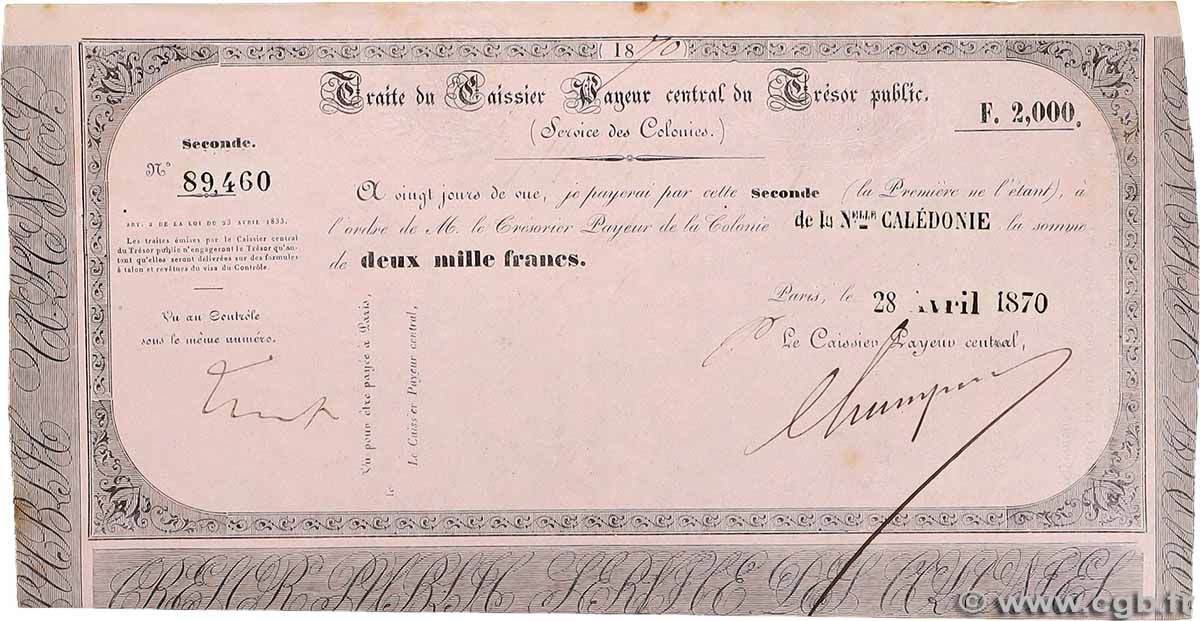 1870
Traite du Caissier Payeur central du Trésor public.
(Service des Colonies.)
F. 2,000.
Seconde.
N° 89,460
ART. 2 DE LA LOI DU 23 AVRIL 1833.
Les traites émises par le Caissier central
du Trésor public n'engageront le Trésor qu'au-
tant qu'elles seront délivrées sur des formules
à talon et revêtues du visa du Contrôle.
Vu au Contrôle
sous le même numéro.
A vingt jours de vue, je payerai par cette Seconde (la Première ne l'étant), à
l'ordre de M. le Trésorier Payeur de la Colonie de la Nelle CALÉDONIE la somme
de deux mille francs.
Paris, le 28 Avril 1870
Le Caissier Payeur central,
Vu pour être payée à Paris,
le
Le Caissier Payeur central,
© www.cgb.fr